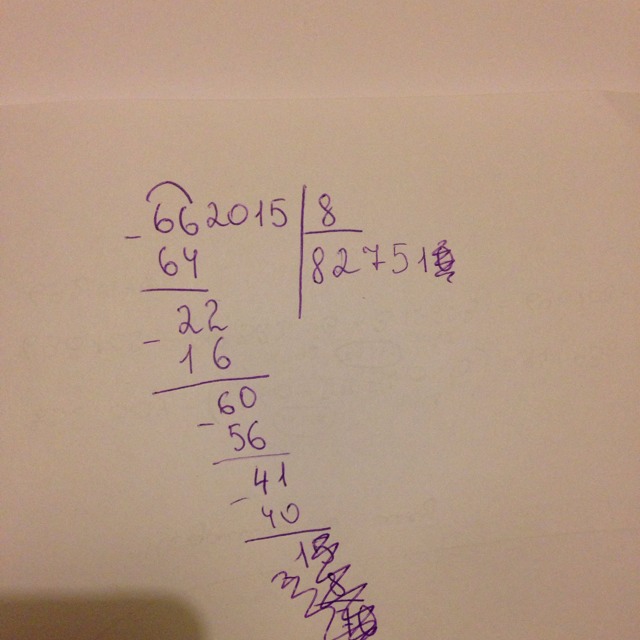 662015 8
- 64 82751
22
- 16
60
- 56
41
- 40